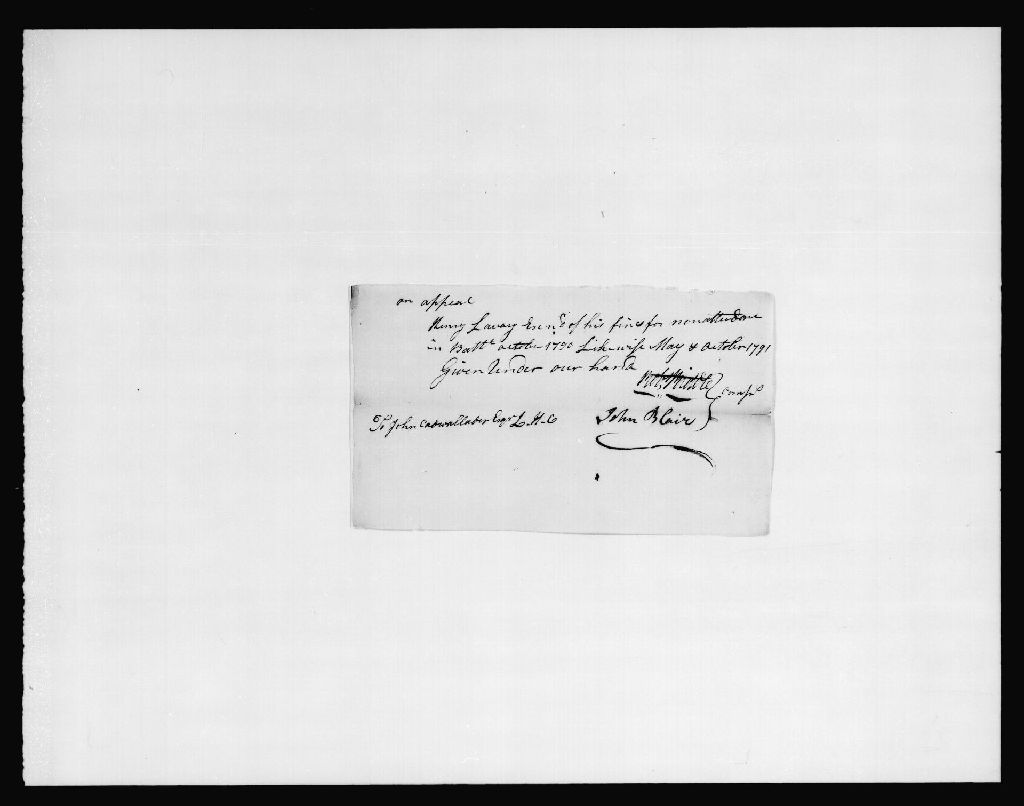 on appeal
Henry Lavary Exn.d of his fines for nonattendanc
in Batt.n october 1790 Likewise May & october 1791
Given Under our hands
Comps
To John Cadwallader Esqr L. H-Co John Blair